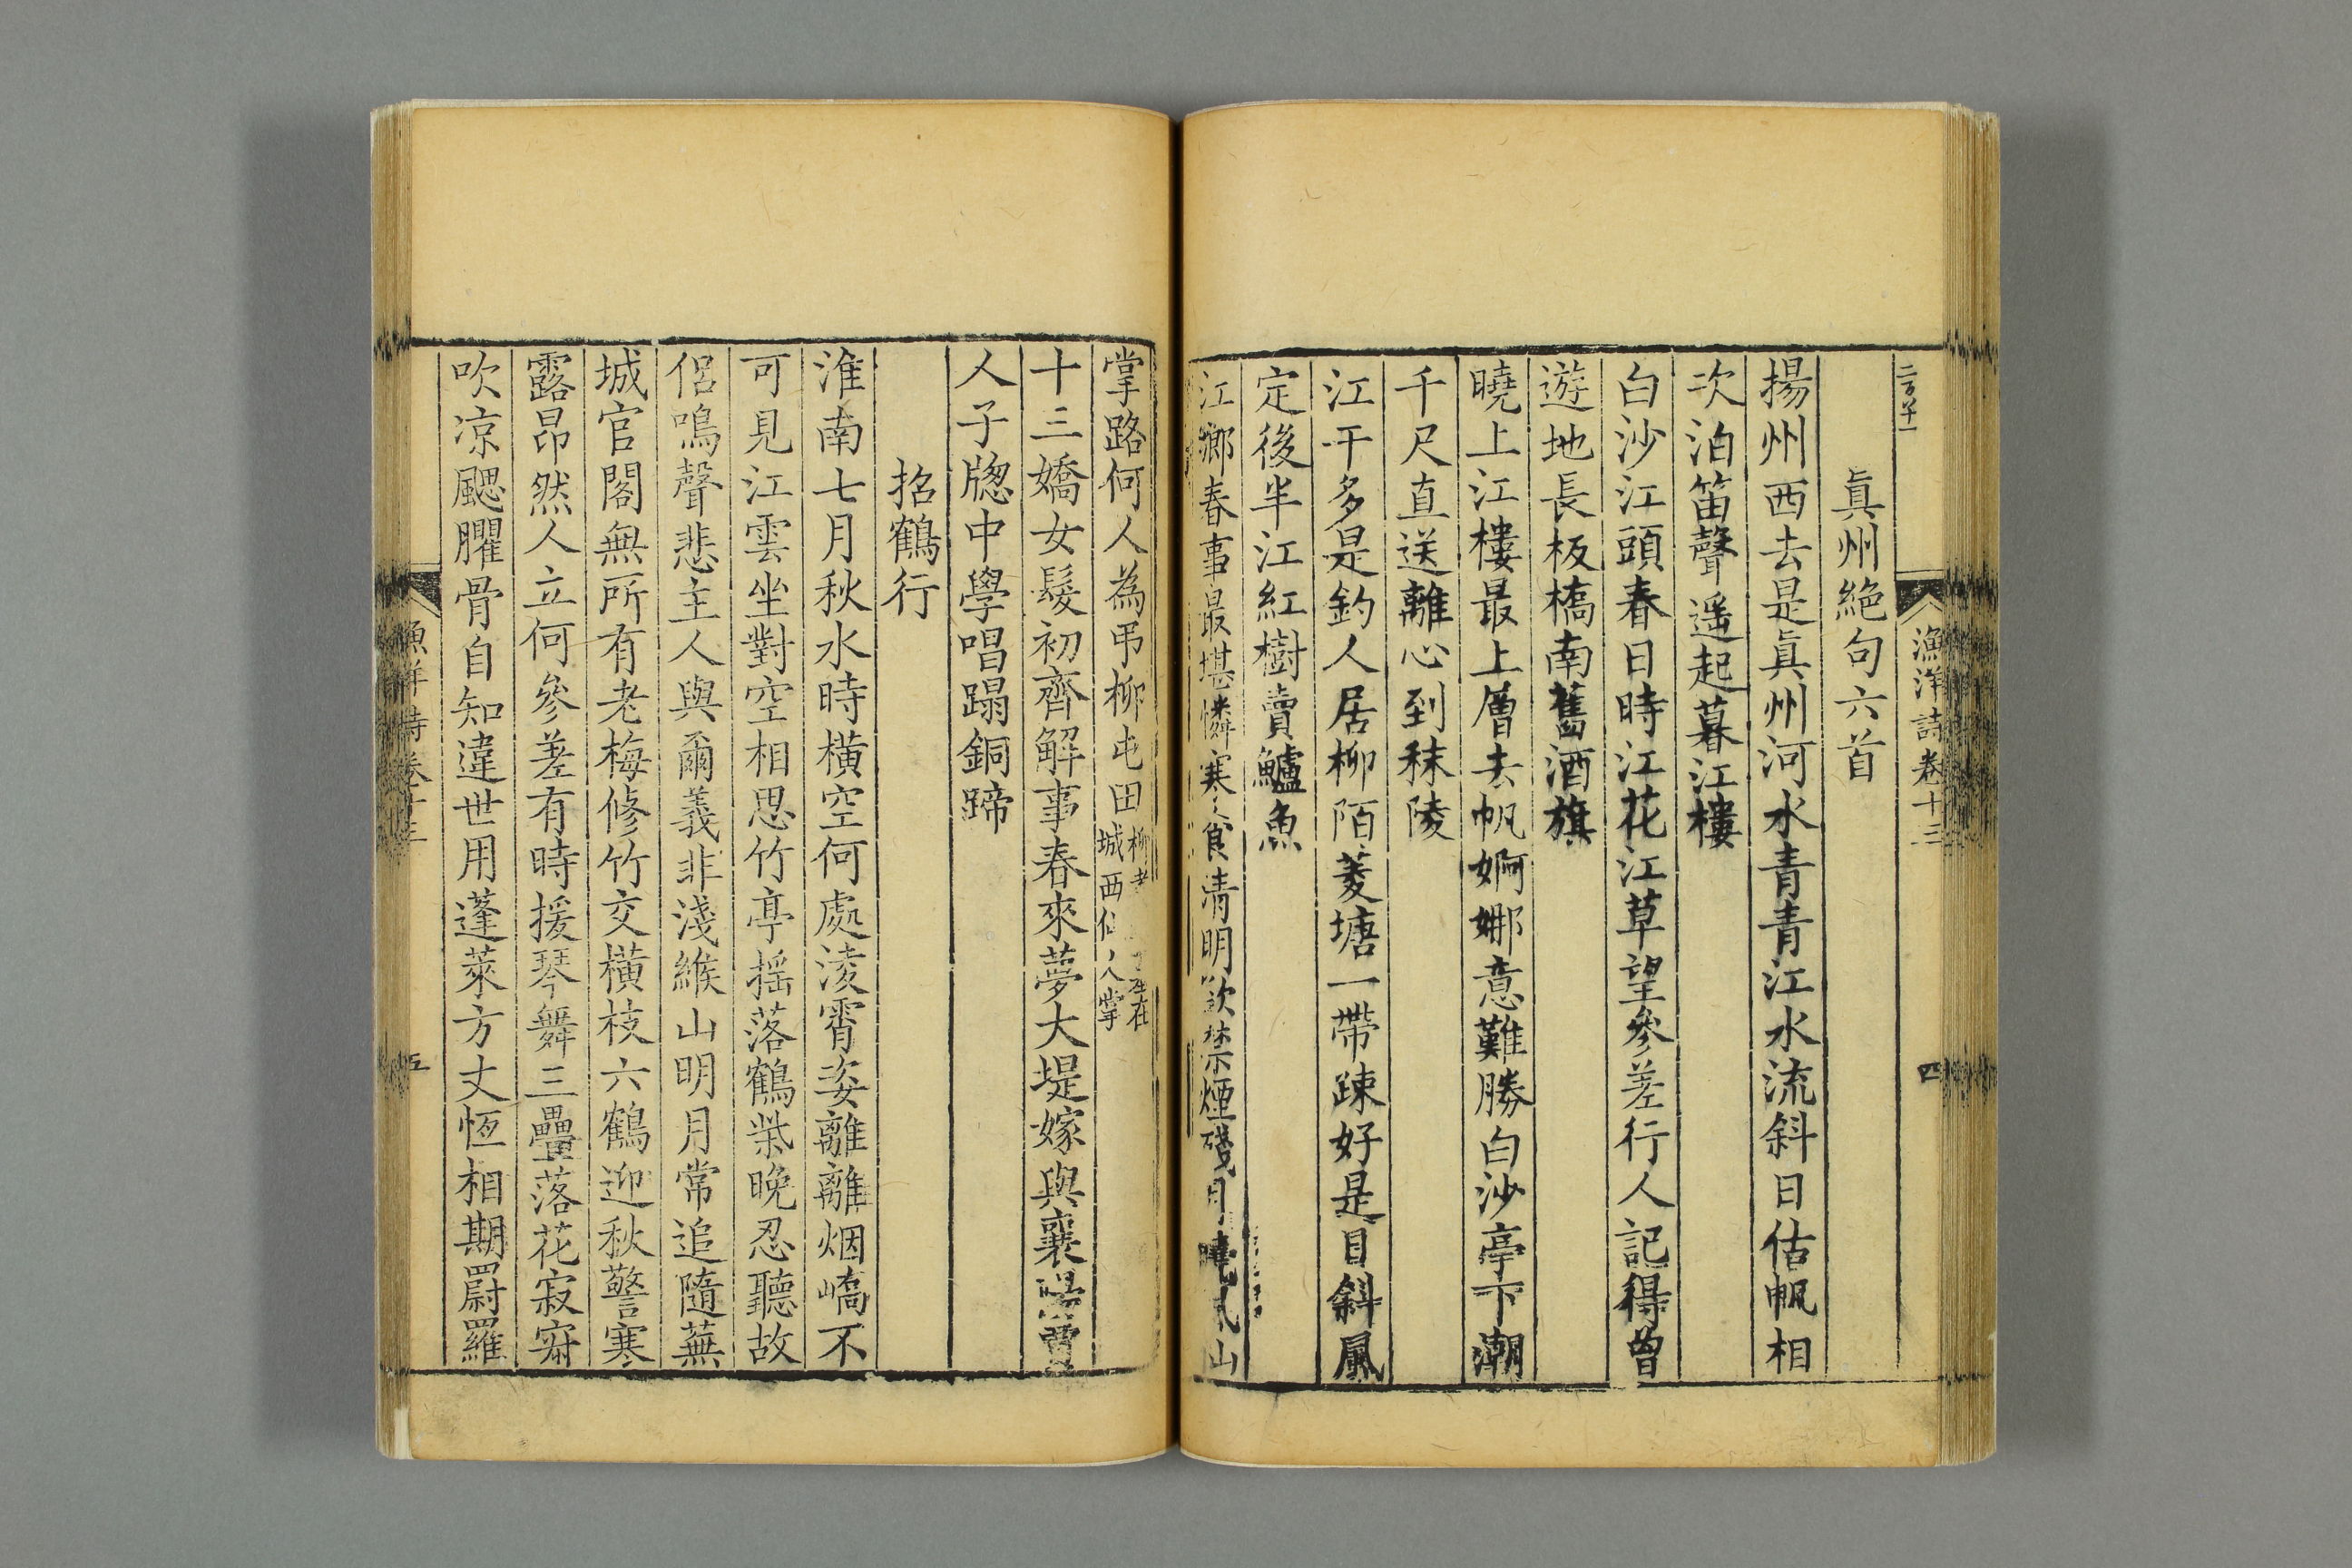 漁洋詩卷十三
四
眞州絶句六首
揚州西去是眞州河水青青江水流斜日估帆相
次泊笛聲遥起暮江樓
白沙江頭春日時江花江草望參差行人記得曾
遊地長板橋南舊酒旗
曉上江樓最上層去帆婀娜意難勝白沙亭下潮
千尺直送離心到秣陵
江干多是釣人居柳陌菱塘一帶踈好是日斜風
定後半江紅樹賣鱸魚
江鄉春事最堪憐寒食清明禁煙殘月曉風
掌路何人為弔柳屯田柳耆在
城西仙人掌
十三嬌女髮初齊解事春來夢大堤嫁與襄陽賈
人子牕中學唱蹋銅蹄
招鶴行
淮南七月秋水時橫空何處淩霄姿離離烟嶠不
可見江雲坐對空相思竹亭揺落鶴柴晚忍聽故
侣鳴聲悲主人與爾義非淺緱山明月常追隨蕪
城官閣無所有老梅修竹交橫枝六鶴迎秋警寒
露昂然人立何參差有時援琴舞三疊落花寂寞
吹凉颸臞骨自知違世用蓬萊方丈恆相期罻羅
漁洋詩卷十三
五